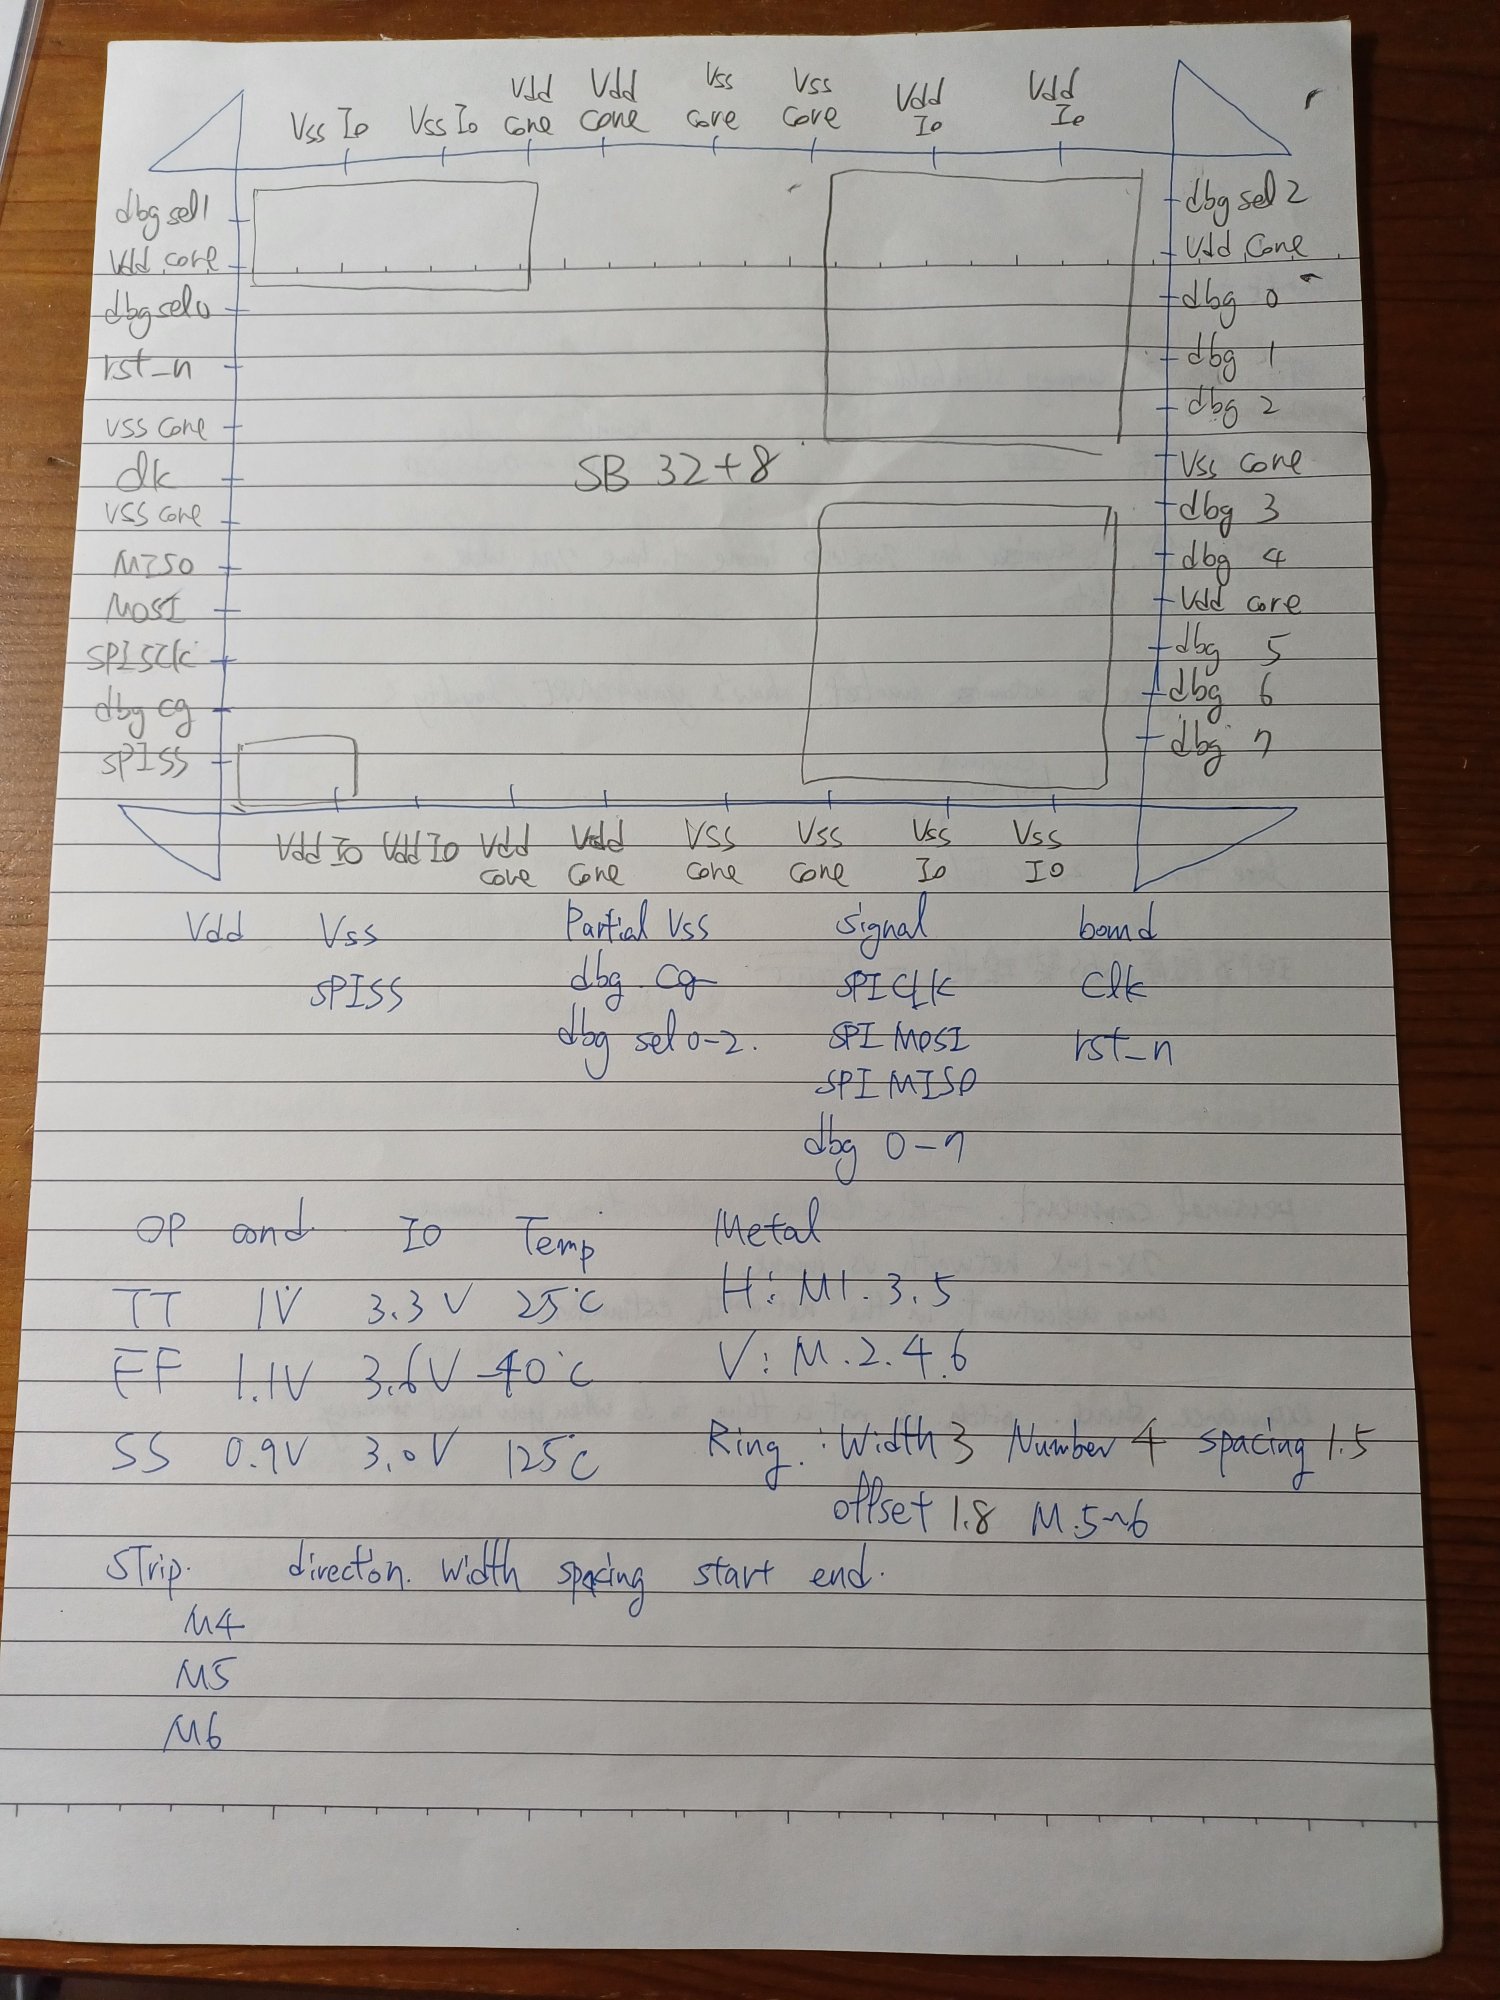 Vss Io Vss Io Vdd core Vdd core Vss core Vss core Vdd Io Vdd Io
dbg sel1
Vdd core
dbg sel0
rst_n
VSS core
clk
VSS core
MISO
MOSI
SPI SClk
dbg cg
SPISS
SB 32+8
dbg sel 2
Vdd Core
dbg 0
dbg 1
dbg 2
VSS core
dbg 3
dbg 4
Vdd core
dbg 5
dbg 6
dbg 7
Vdd IO Vdd IO Vdd core Vdd core VSS core Vss core Vss Io Vss IO
Vdd Vss Partial Vss signal bond
SPISS dbg cg SPI CLK clk
dbg sel 0-2. SPI MOSI rst_n
SPI MISO
dbg 0-7
OP cond. IO Temp Metal
TT 1V 3.3V 25°C H: M1.3.5
FF 1.1V 3.6V -40°C V: M.2.4.6
SS 0.9V 3.0V 125°C Ring: Width 3 Number 4 spacing 1.5
offset 1.8 M.5~6
STrip. direction. width spacing start end.
M4
M5
M6